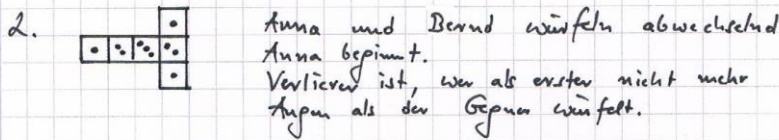 2. Anna und Bernd würfeln abwechselnd
Anna beginnt.
Verlierer ist, wer als erster nicht mehr
Augen als der Gegner würfelt.